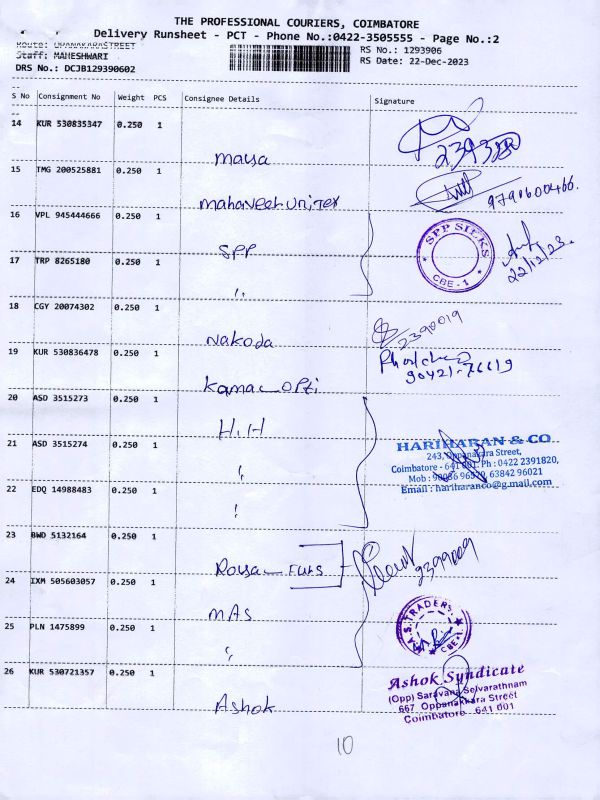 THE PROFESSIONAL COURIERS, COIMBATORE
Delivery Runsheet - PCT - Phone No.:0422-3505555 - Page No.:2
Route: OPANAKARASTREET
RS No.: 1293906
Staff: MAHESHWARI
RS Date: 22-Dec-2023
DRS No.: DCJB129390602
S No Consignment No Weight PCS Consignee Details Signature
14 KUR 530835347 0.250 1
Maya
239380
15 TMG 200525881 0.250 1
Mahaveer Uniter
9791600466.
16 VPL 945444666 0.250 1
SPP
SPP SILKS
CBE - 1
22/12/23.
17 TRP 8265180 0.250 1
"
18 CGY 20074302 0.250 1
Nakoda
2390019
19 KUR 530836478 0.250 1
90421-76619
Kamal Opti
20 ASD 3515273 0.250 1
H.H
HARIHARAN & CO
243, Oppanakara Street,
Coimbatore - 641 001. Ph : 0422 2391820,
Mob : 96577, 63842 96021
Email : hariharanco@g.mail.com
21 ASD 3515274 0.250 1
"
22 EDQ 14988483 0.250 1
"
23 BWD 5132164 0.250 1
Royal Furs
2399009
24 IXM 505603057 0.250 1
MAS
M.A.S. TRADERS
CBE-1
25 PLN 1475899 0.250 1
"
26 KUR 530721357 0.250 1
Ashok
Ashok Syndicate
(Opp) Saravana Selvarathnam
667, Oppanakkara Street
Coimbatore - 641 001
10